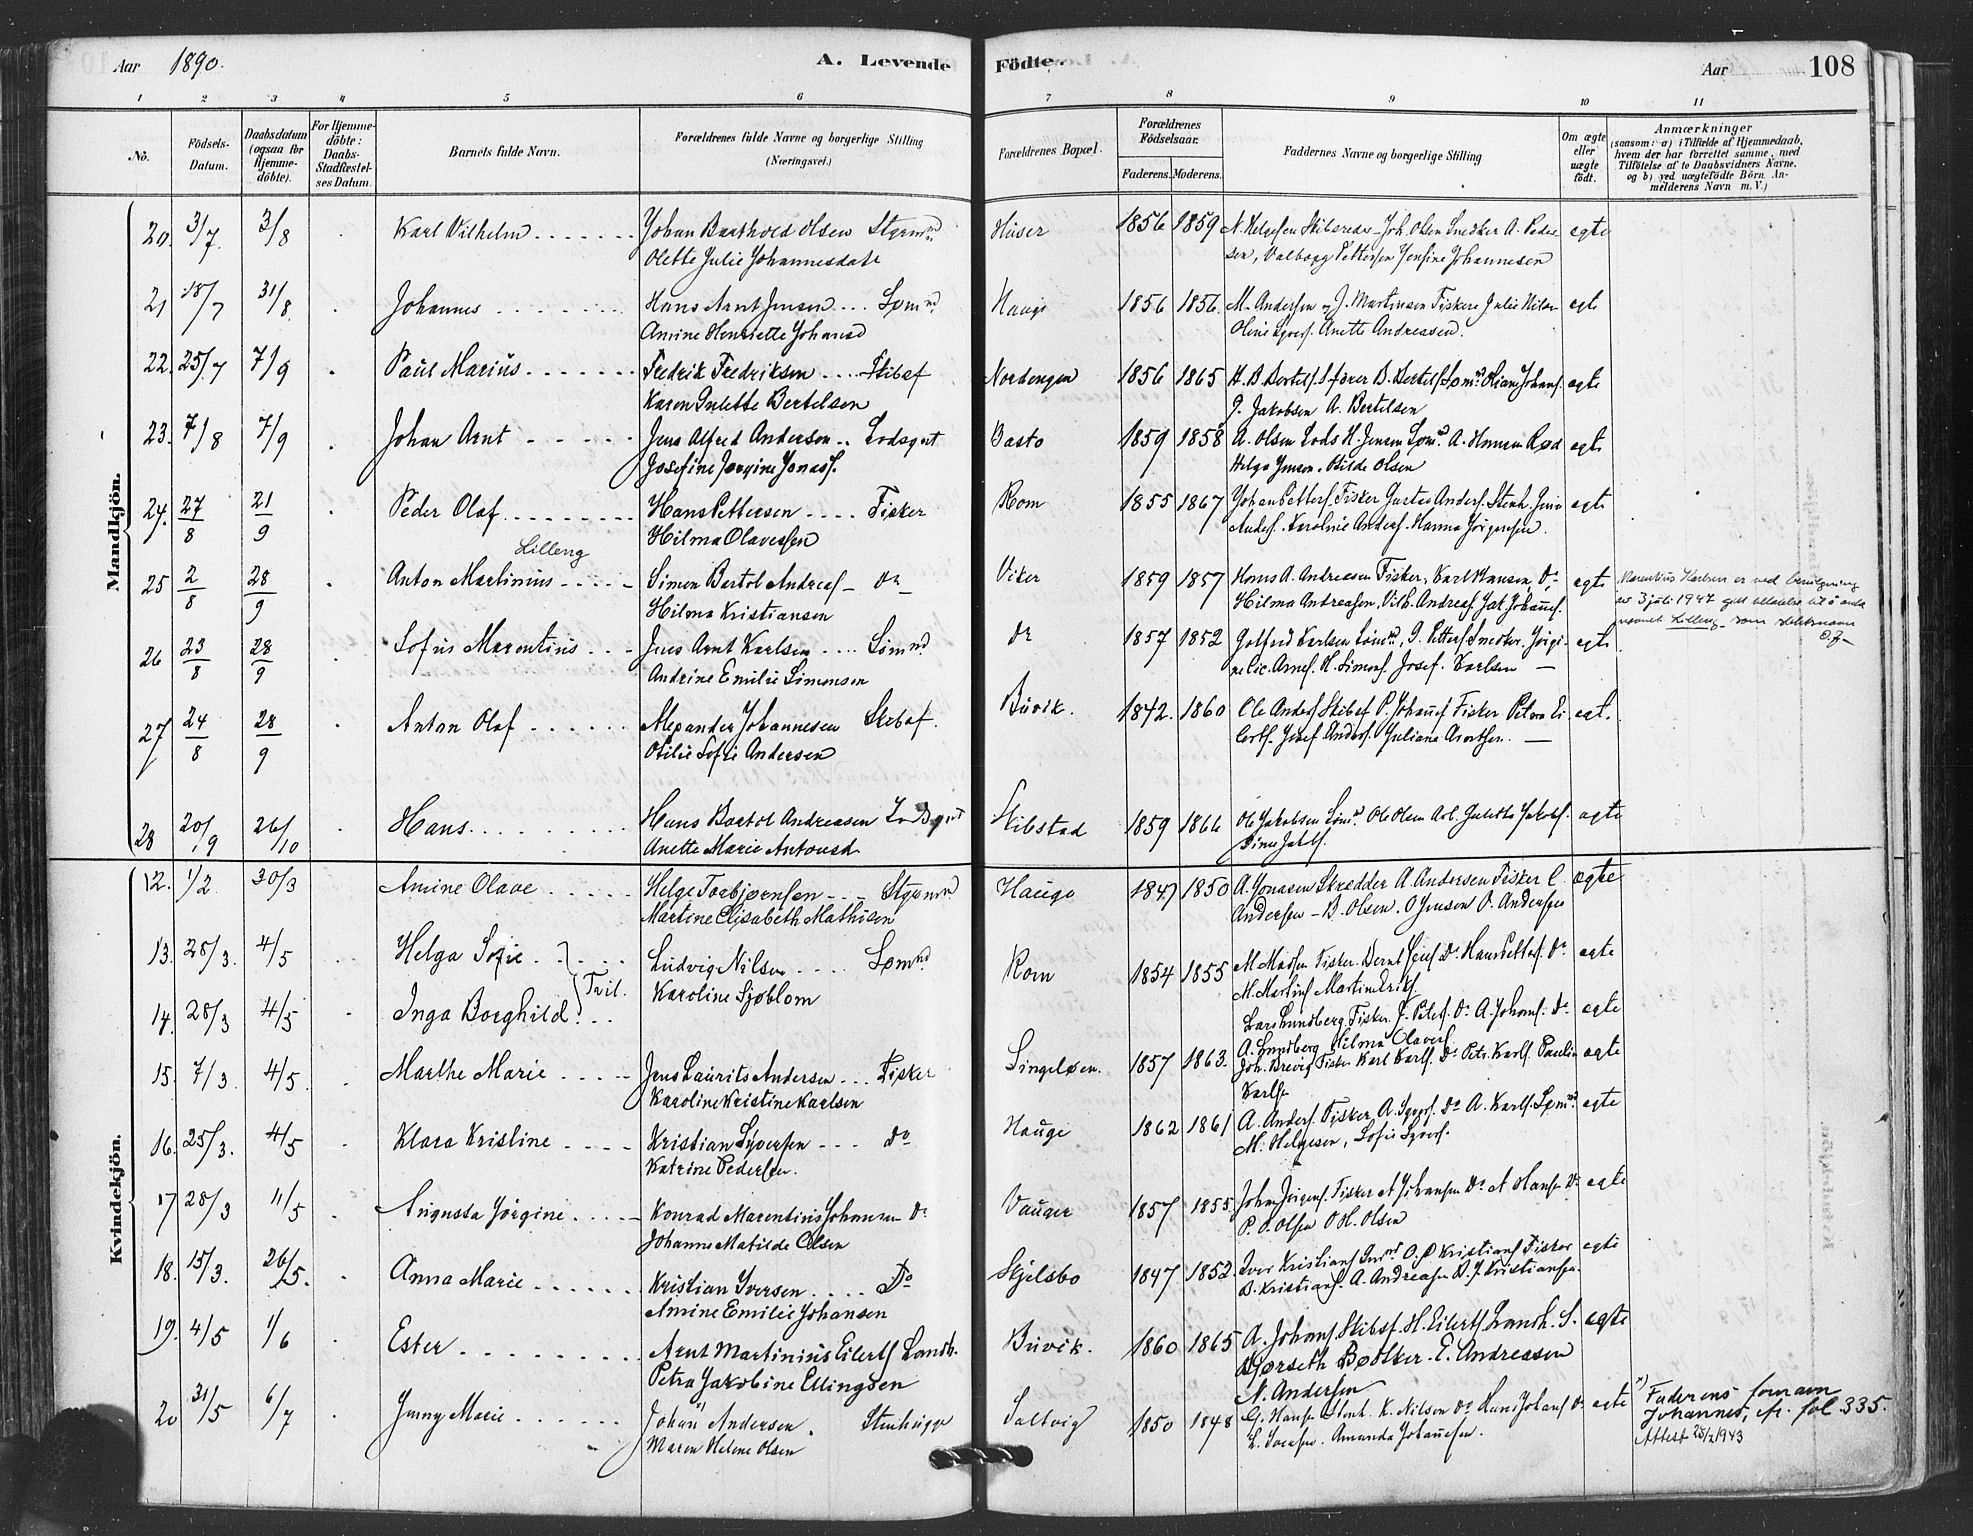 Aar 1890.
A. Levende Födte.
Aar 108
1 2 3 4 5 6 7 8 9 10 11
No.
Födsels-Datum.
Daabsdatum (ogsaa for Hjemme-döbte).
For Hjemme-döbte: Daabs-Stadfæstel-ses Datum.
Barnets fulde Navn.
Forældrenes fulde Navne og borgerlige Stilling (Næringsvei.)
Forældrenes Bopæl.
Forældrenes Födselsaar.
Faderens. Moderens.
Faddernes Navne og borgerlige Stilling
Om ægte eller uægte födt.
Anmærkninger
(saasom: a) i Tilfælde af Hjemmedaab,
hvem der har forrettet samme, med
Tilföielse af to Daabsvidners Navne.
og b) ved uægtefödte Börn, An-
melderens Navn m. V.)
Mandkjön.
20. 3/7. 3/8 Karl Vilhelm Johan Barthold Olsen Styrmnn Huser 1856 1859 N. Helgesen Skibsreder Joh. Olsen Snedker A. Peder egte
Olette Julie Johannesdatt sen, Valborg Pettersen Jensine Johannesen
21 18/7 31/8. Johannes Hans Arnt Jensen Sømnd. Hauge 1856 1856. M. Andersen og J. Martinsen Fiskere Julie Nilsn egt
Amine Henriette Johansd Anette Andreasen.
22. 25/7 7/9 Paul Marius Fredrik Fredriksen Skibsf Nordengen 1856 1865 H. B. Bertelsf. B. Bertelsf Sømnd Johans. egte
Karen Gulette Bertelsen J. Jakobsen A. Bertelsen
23. 7/8 7/9 Johan Arnt Jens Alfred Andersen Lodsgut Basto 1859 1858 A. Olsen Lods H. Jensen Sømnd. A. Hansen Rød egte
Josefine Jørgine Jonasf. Helga Jensen. Otilde Olsen
24. 27/8 21/9 Peder Olaf Hans Pettersen Fisker Rom 1855 1867 Johan Petters. Fisker Gustav Anders. Stenh. egte
Hilma Olavessen Anders. Karoline Anders. Hanna Jörgensen.
Lilleng
25 2/8 28/9 Anton Martinius Simon Bertol Andreas do Viker 1859 1857 Hans A. Andreasen Fisker, Karl Hansen, Do egte
Hilma Kristiansen Hilma Andreasen, Vilh. Andreas. Jak. Johannes.
Marentius Karlsen er ved bevilgning
av 3 juli 1947 gitt tillatelse til å anta
navnet Lilleng som slektsnavn
26 23/8 28/9 Sofus Marentius Jens Arnt Karlsen Sömnd. do 1857 1852 Gotfred Karlsen Sömnd., J. Petters Snedker. egte
Andrine Emilie Simensen H. Simons. Josef. Karlsen
27 24/8 28/9 Anton Olaf Alexander Johannesen Skibsf. Buvik. 1842. 1860 Ole Anders Skibsf P. Johannes Fisker Petra Ei egt.
Otilie Sofie Andersen Josef Anders. Juliane Arntsen.
28 20/9 26/10 Hans Hans Bartol Andreasen Lodsgut Skibstad 1859 1866 Ole Jakobsen Sømd. Ole Olsen Arb. Julette Jakobs. egte
Anette Marie Antonsd Dina Jakobs.
Kvindekjön.
12. 1/2. 30/3 Amine Olave Helge Torbjørnsen Styrmnd Hauge 1847 1850 A. Jonasen Skrædder A. Andersen Fisker C. ægte
Martine Elisabeth Mathisen Andersen B. Olsen. O Jensen O. Andersen
13. 28/3. 4/5 Helga Sofie Tvil. Ludvig Nilsen Sømnd. Rom 1854 1855 M Madsen Fisker. Bernt Do Hans Petters. Do egte
Karoline Sjøblom M. Martins Martin Eriks.
14. 28/3 4/5 Inga Borghild. Lars Lundberg Fisker. J. Peters. Do A. Johans. Do egte
A. Lundberg Hilma Olaves.
15. 7/3. 4/5. Marthe Marie Jens Laurits Andersen Fisker Singeløen. 1857 1863. Joh. Brevig Fisker Karl Karls. Do Petr. Karls. Paulin egte
Karoline Kristine Karlsen Karlsen
16. 25/3. 4/5 Klara Kristine Kristian Syversen do Hauge 1862 1861 A. Anders. Fisker, A. Syvers. Do A. Karls. Sømnd. egte
Katrine Pedersen. M. Helgesen, Sofie Syvers.
17 28/3 11/5 Augusta Jørgine Konrad Marentius Johansen Do Vauger 1857 1855 Johan Jörgens. Fisker A Johansen Do A Hansen Do egte
Johanne Matilde Olsen P. O. Olsen O H. Olsen
18. 15/3. 26/5. Anna Marie Kristian Iversen Do Skjelsbo 1847 1852. Iver Kristians O. P Kristians Fisker egte
Amine Emilie Johansen B. Kristians. A. Andreasen B. J. Kristiansen
19. 4/5 1/6 Ester Arnt Martinius Eilerts Landh. Buvik. 1860 1865 A. Johans. Skibsf. H. Eilerts. Landh. S. egte
Petra Jakobine Ellingsen Bjørseth Bødtker. E. Andreasen
N. Andersen
20 31/5 6/7 Jenny Marie Johan x) Andersen Stenhugger Saltvig 1850 1848 G. Hansen Stenh. K. Nilsen Do Hans Johans Do egte
Maren Helene Olsen L. Amanda Johannesen.
x) Faderens fornavn
Johannes, fol 335.
Attest 25/2 1943